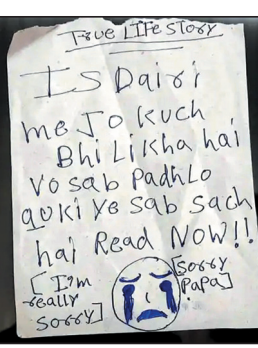 True LIFe Story
IS Dairi
me Jo kuch
Bhi Likha hai
Vo sab Padhlo
quki ye sab sach
hai Read NOW!!
[I'm
really
sorry]
[Sorry
PaPa]